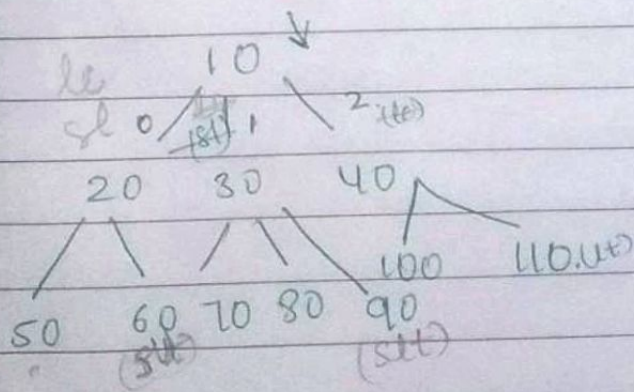 10
0 (st) 1 2
20 30 40
100 110
50 60 70 80 90
(slt) (slt)